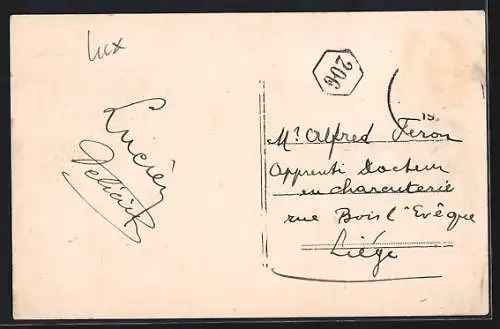 Lux
206
Lucien
Delicat
Mr. Alfred Feron
Apprenti Docteur
en charcuterie
rue Bois l'Evêque
Liége